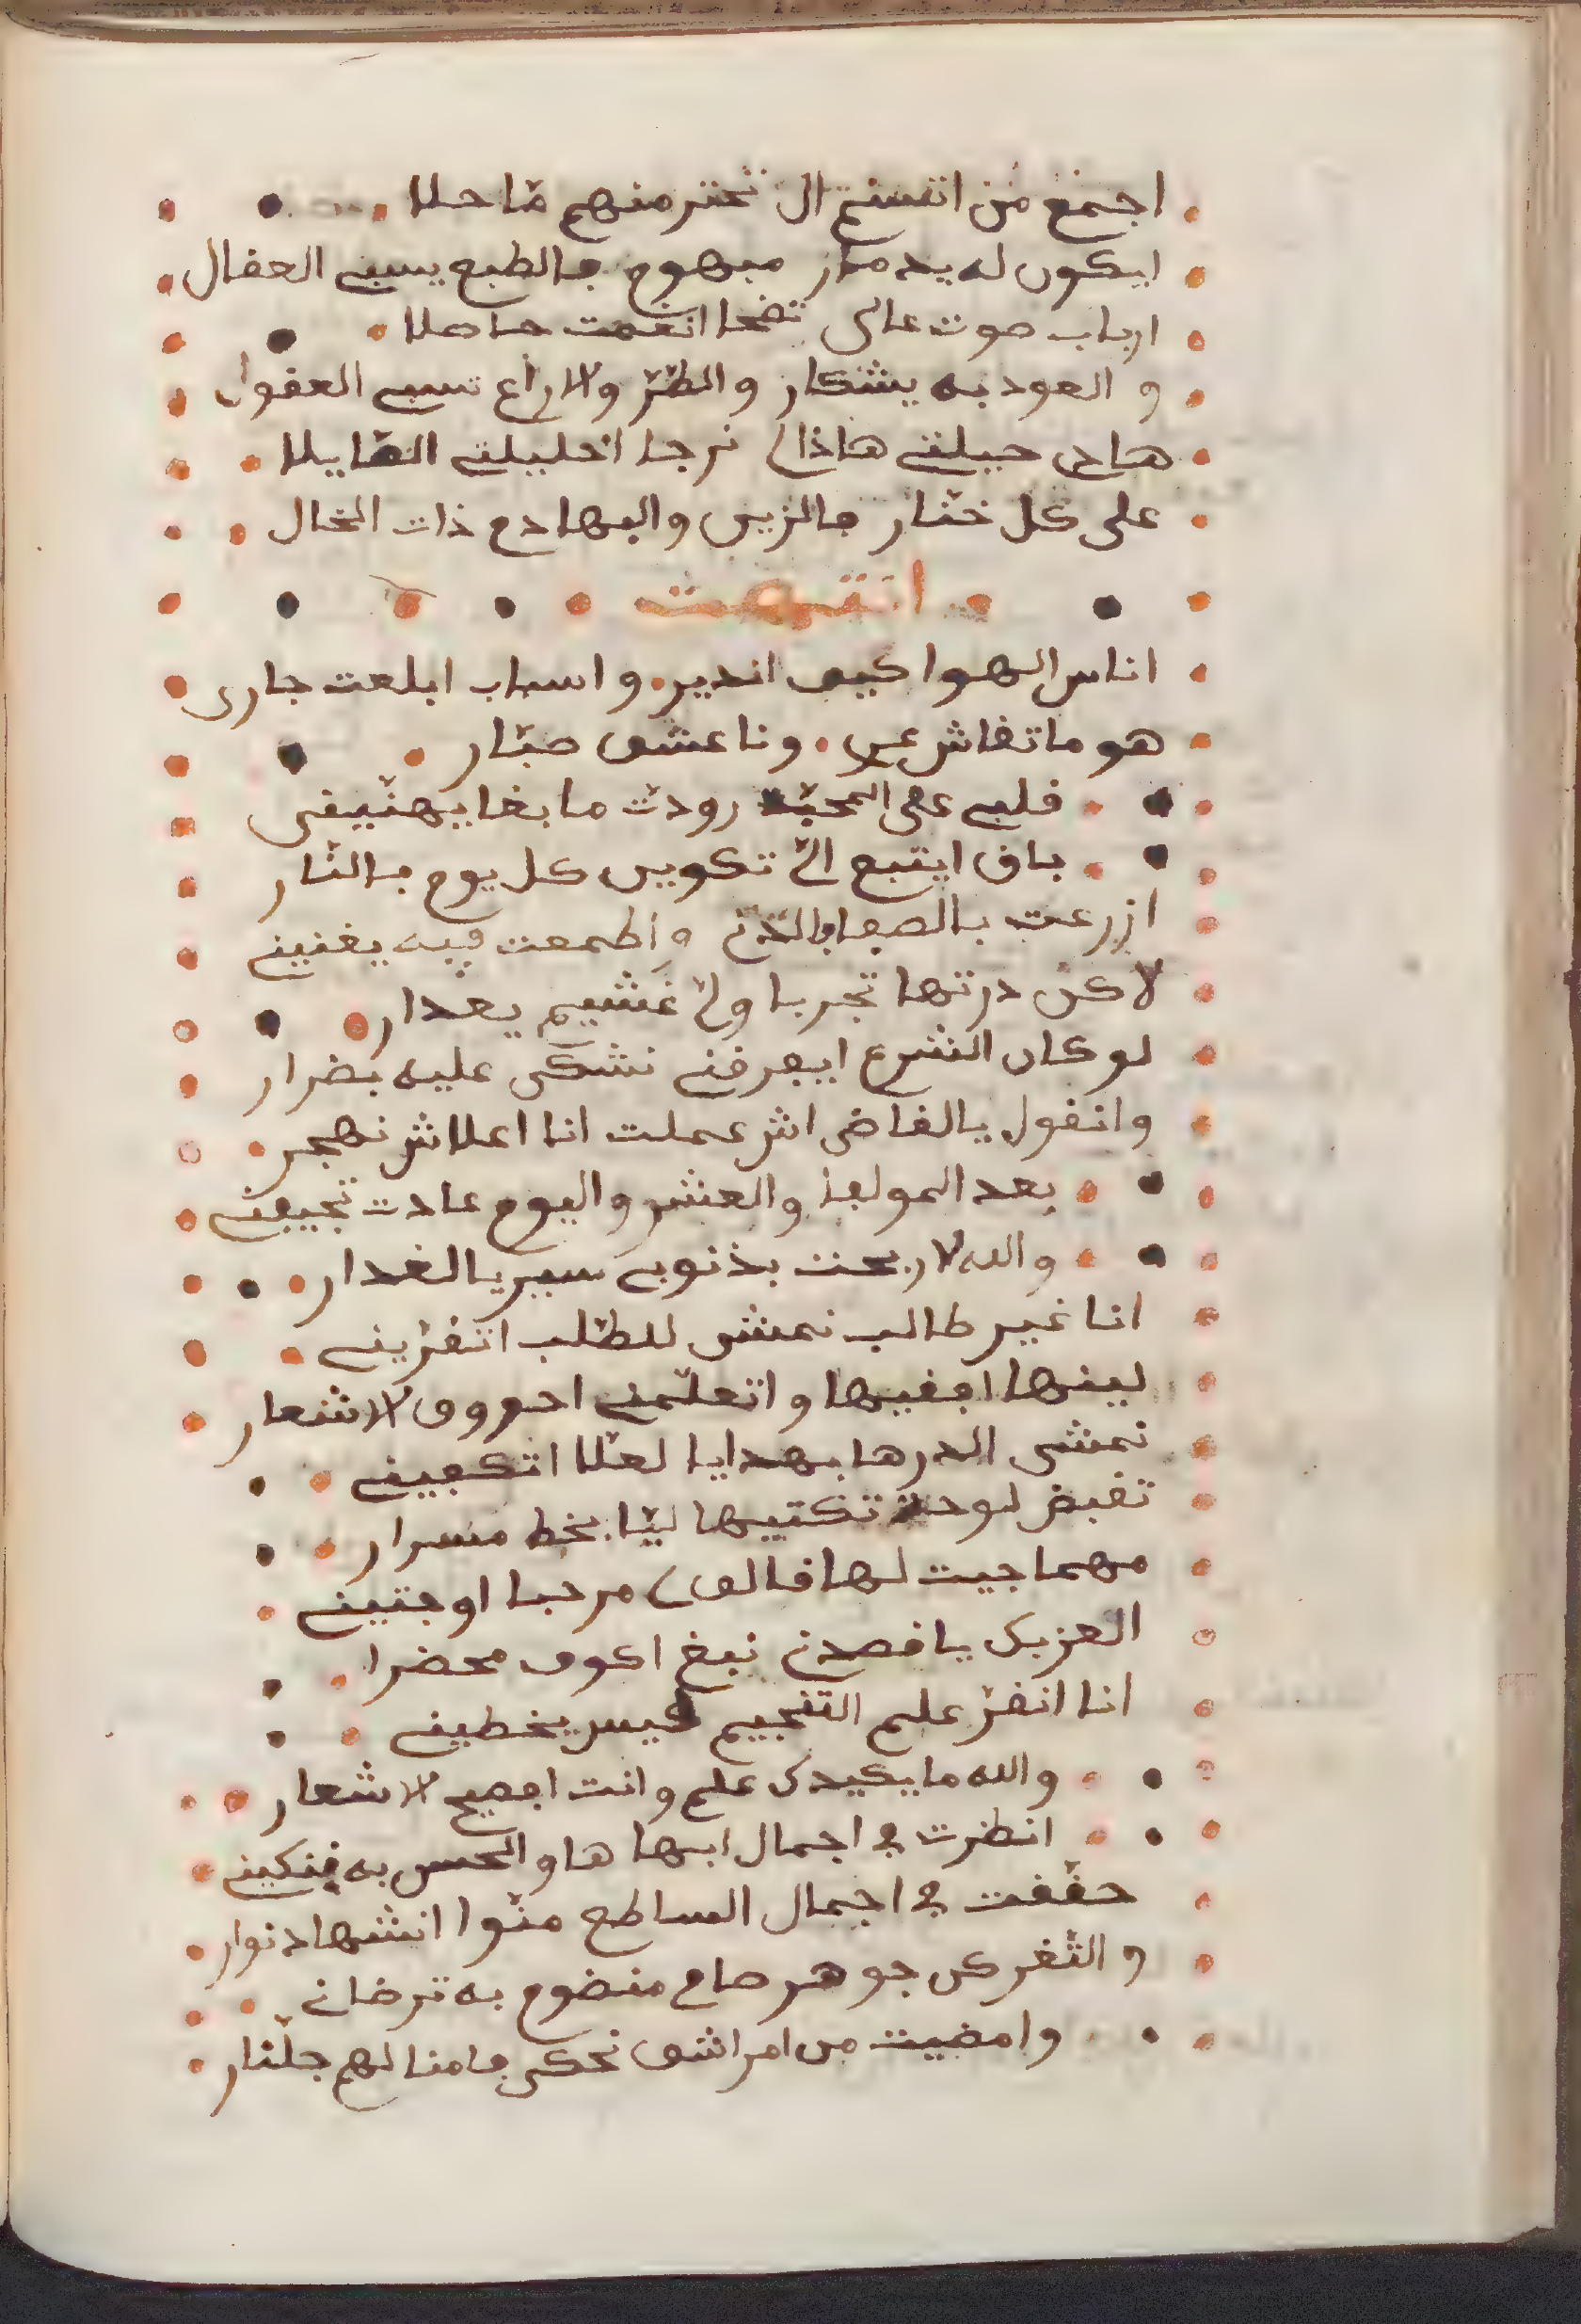 اجمع من اتسنح ال تختر منهم ما حلا
ايكون له يد مبهوم فالطبع يسبي العفال
ارباب صوت عالى تضحا انغمت حاصلا
و العود به يشكار والطر ولاراع تسبي العفول
هادى حيلتي هاذا نرجا اخليلتي الهايلا
على كل ختار فالزين والبها دم ذات الخال
انتهت
اناس الهوا كيف اندير و اسباب ابلعت جارى
هو ماتفاش عنى وناعشف صبار
فلبي عمى المحبة رودت ما بغا يهنيني
باف ايتبع الى تكوين كل يوم فالنار
ازرعت بالصفا واطمعت فيه يغنيني
لاكن درتها تجربا ولى غشيم يغدار
لو كان الشرع ايعرفني نشكى عليه بضرار
وانفول يالفاضى اش عملت انا اعلاش نهجر
بعد المولفا والعشر واليوم عادت تجيفني
والله لاربحت بذنوبي سير يالغدار
انا غير طالب نمشى للطلب اتفريني
لينها افيها و اتعلمني احروف لاشعار
نمشى الدرها بهدايا لعلا اتكفيني
تفبض لوحة تكتيها ليا بخط مسرار
مهما جيت لها فالت مرحبا اوجتيني
العزبك يافصدى نبغ اكون محضرا
انا انفر علم التنجيم كيس يخطيني
والله ما يكيدك علم وانت افصيح لاشعار
انظرت في اجمال ابها ها والحسن به فنكيني
حففت في اجمال الساطع منوا انشها دنوار
والثغر كن جوهر صافى منضوم به ترضاني
وامضيت من امراشف نحكى فامنالهم جلنار